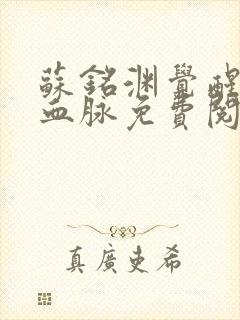 蘇銘淵覺醒
血脉免費閱
真廣吏希